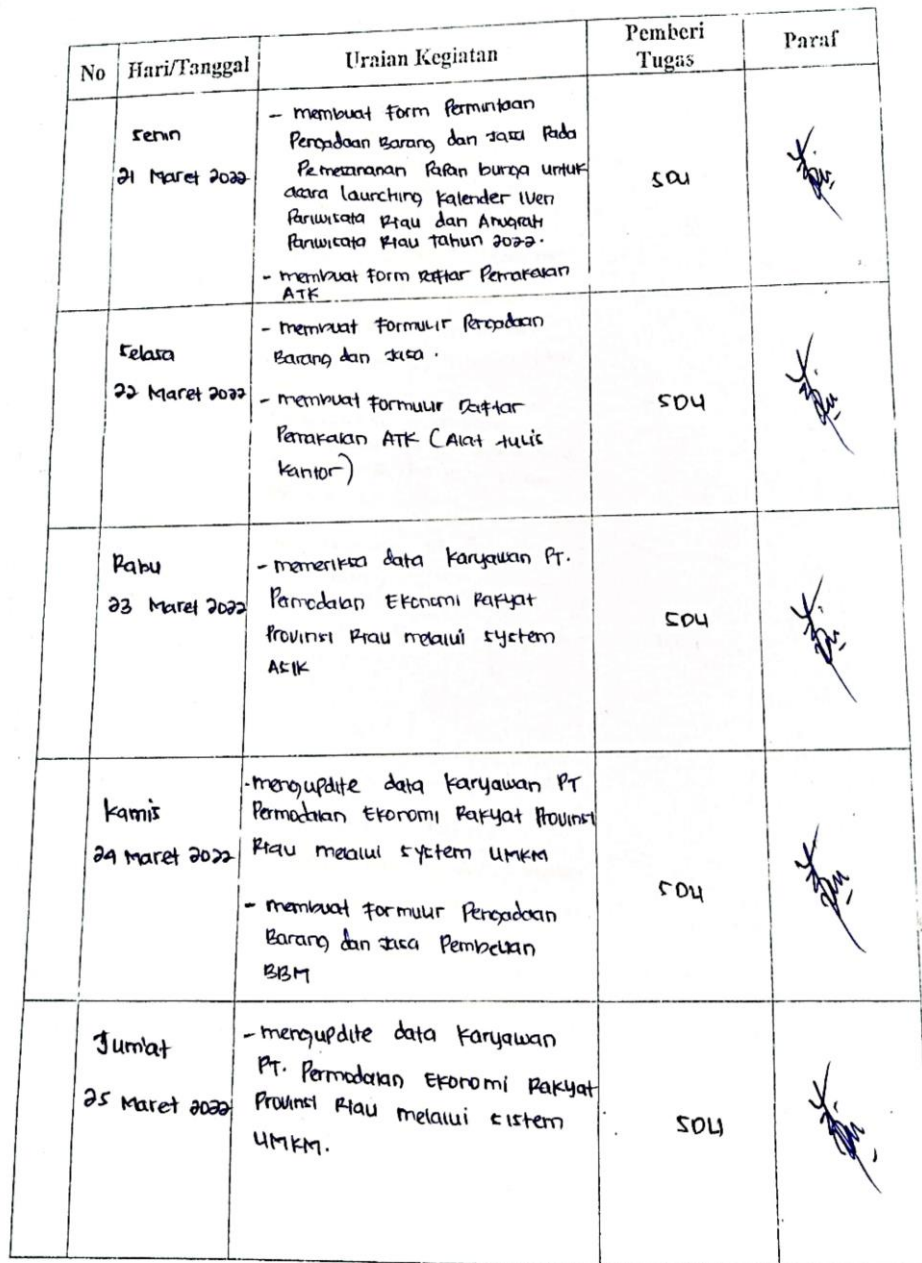 No Hari/Tanggal Uraian Kegiatan Pemberi Tugas Paraf
Senin
21 Maret 2022
- membuat Form Permintaan
Pengadaan Barang dan Jasa Pada
Pemesananan Papan bunga untuk
acara launching Kalender Iven
Pariwisata Riau dan Anugrah
Pariwisata Riau tahun 2022.
- membuat Form Daftar Pemakaian
ATK
SDU
Selasa
22 Maret 2022
- membuat Formulir Pengadaan
Barang dan Jasa.
- membuat Formulir Daftar
Pemakaian ATK (Alat tulis
Kantor)
SDU
Rabu
23 Maret 2022
- memeriksa data Karyawan PT.
Permodalan Ekonomi Rakyat
Provinsi Riau melalui system
ASIK
SDU
Kamis
24 Maret 2022
- mengupdite data Karyawan PT
Permodalan Ekonomi Rakyat Provinsi
Riau melalui system UMKM
- membuat Formulir Pengadaan
Barang dan Jasa Pembelian
BBM
SDU
Jum'at
25 Maret 2022
- mengupdite data Karyawan
PT. Permodalan Ekonomi Rakyat
Provinsi Riau melalui sistem
UMKM.
SDU